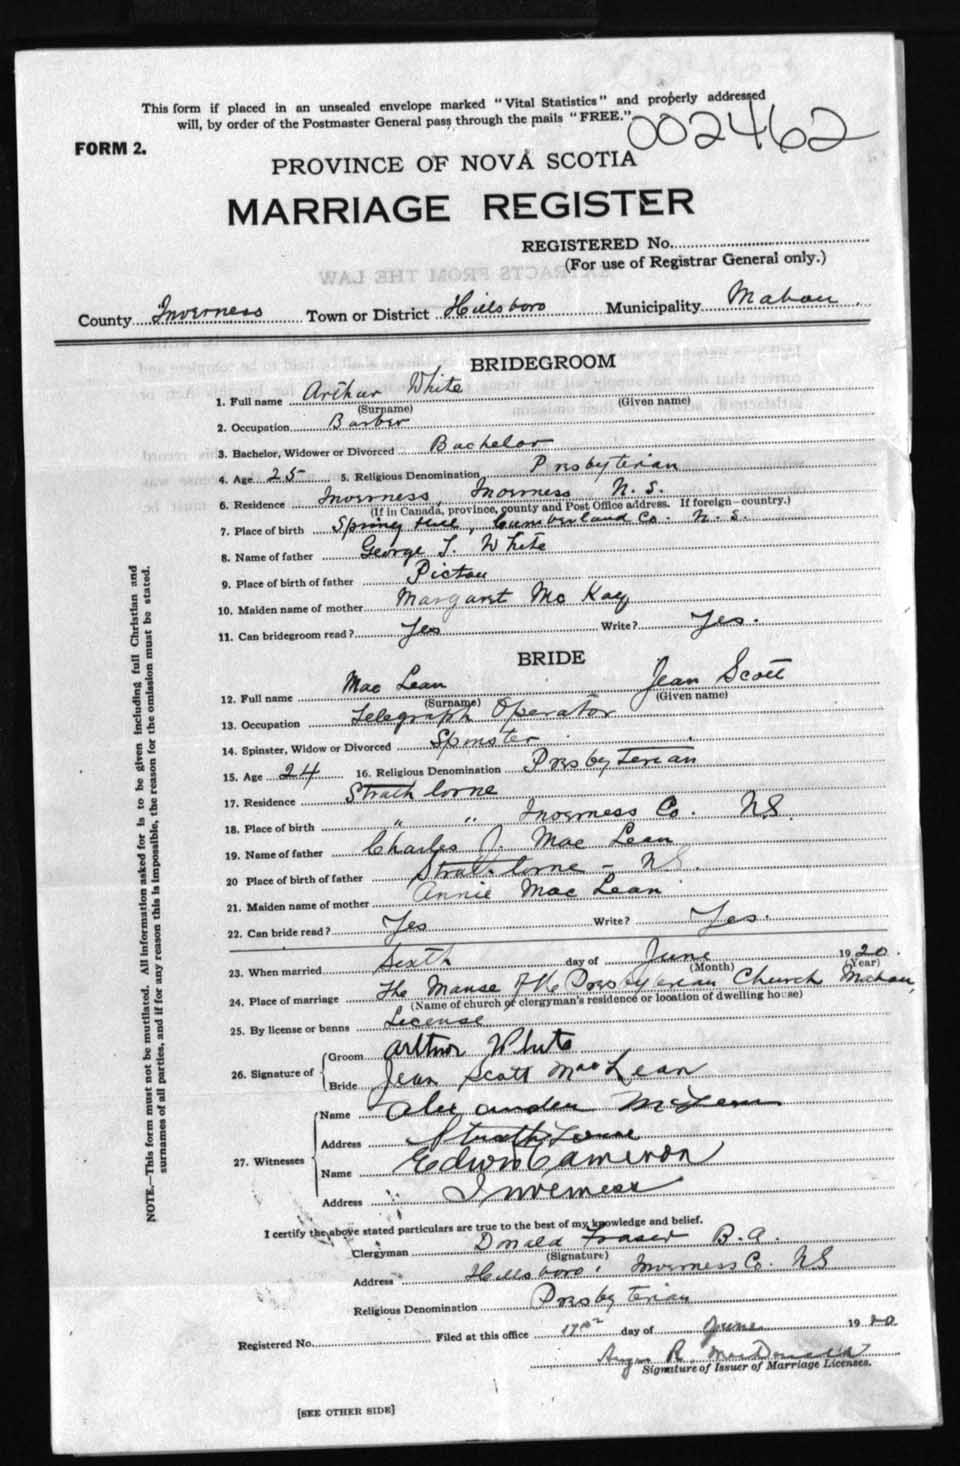 This form if placed in an unsealed envelope marked "Vital Statistics" and properly addressed
will, by order of the Postmaster General pass through the mails "FREE."
002462
FORM 2.
PROVINCE OF NOVA SCOTIA
MARRIAGE REGISTER
REGISTERED No.
(For use of Registrar General only.)
County Inverness Town or District Hillsboro Municipality Mabou
BRIDEGROOM
1. Full name Arthur White
(Surname) (Given name)
2. Occupation Barber
3. Bachelor, Widower or Divorced Bachelor
4. Age 25 5. Religious Denomination Presbyterian
6. Residence Inverness, Inverness N. S.
(If in Canada, province, county and Post Office address. If foreign—country.)
7. Place of birth Spring Hill, Cumberland Co. N. S.
8. Name of father George T. White
9. Place of birth of father Pictou
10. Maiden name of mother Margaret Mc Kay
11. Can bridegroom read? Yes Write? Yes.
BRIDE
12. Full name Mac Lean Jean Scott
(Surname) (Given name)
13. Occupation Telegraph Operator
14. Spinster, Widow or Divorced Spinster
15. Age 24 16. Religious Denomination Presbyterian
17. Residence Strathlorne
18. Place of birth " " Inverness Co. N.S.
19. Name of father Charles J. Mac Lean
20 Place of birth of father Strathlorne - NS.
21. Maiden name of mother Annie Mac Lean
22. Can bride read? Yes Write? Yes.
23. When married Sixth day of June 1920.
(Month) (Year)
24. Place of marriage The Manse of the Presbyterian Church Mabou,
(Name of church or clergyman's residence or location of dwelling house)
25. By license or banns License
26. Signature of
Groom Arthur White
Bride Jean Scott MacLean
27. Witnesses
Name Alexander McLean
Address Strathlorne
Name Edwin Cameron
Address Inverness
I certify the above stated particulars are true to the best of my knowledge and belief.
Clergyman Donald Fraser B.A.
(Signature)
Address Hillsboro, Inverness Co. NS
Religious Denomination Presbyterian
Registered No. Filed at this office 17th day of June 1920
Angus R. MacDonald
Signature of Issuer of Marriage Licenses.
[SEE OTHER SIDE]
NOTE.—This form must not be mutilated. All information asked for is to be given including full Christian and
surnames of all parties, and if for any reason this is impossible, the reason for the omission must be stated.